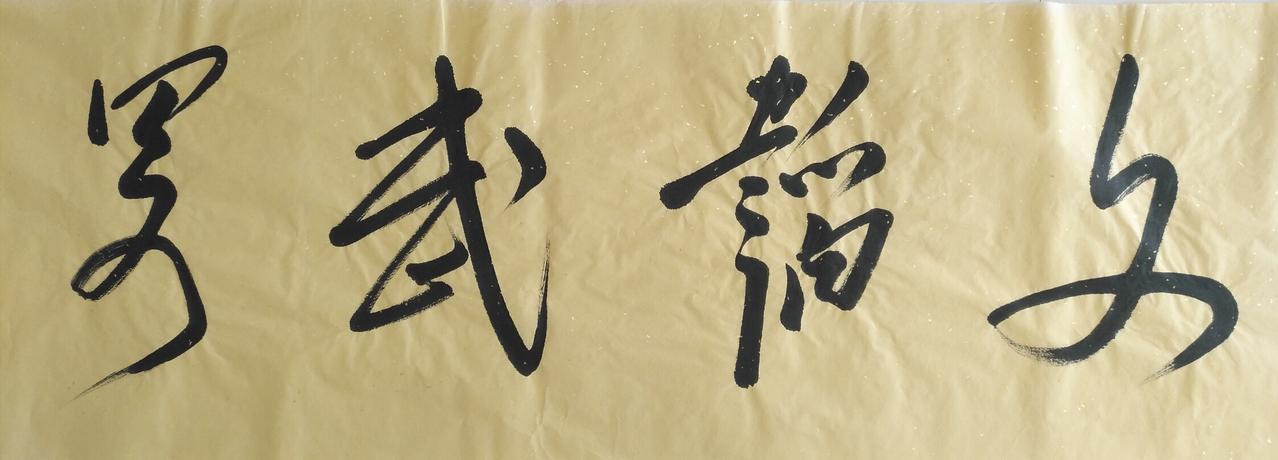 文韬武略